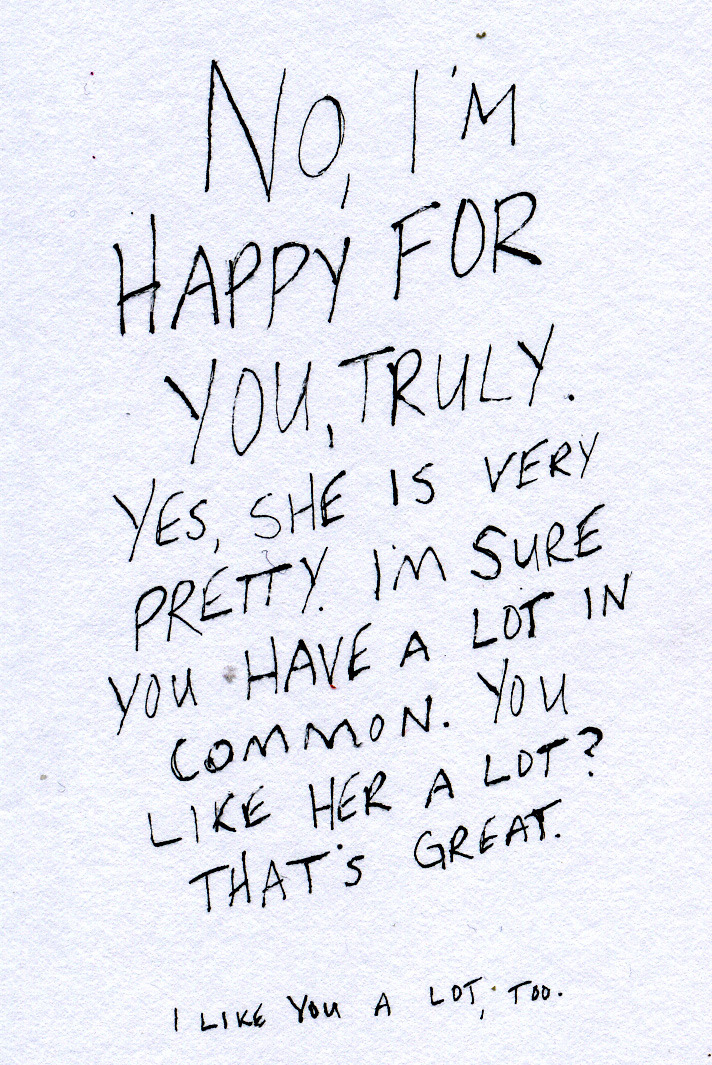 No, I'M
HAPPY FOR
YOU, TRULY.
YES, SHE IS VERY
PRETTY. I'M SURE
YOU HAVE A LOT IN
COMMON. YOU
LIKE HER A LOT?
THAT'S GREAT.
I LIKE YOU A LOT, TOO.